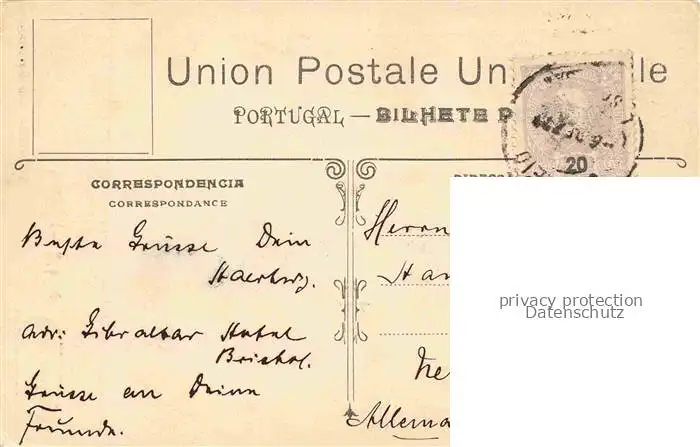 Union Postale Un le
PORTUGAL — BILHETE P
20
CORRESPONDENCIA
CORRESPONDANCE
Beste Grüsse Dein
Haertwig.
Adr: Gibraltar Hotel
Bristol.
Grüsse an Deine
Freunde.
Herrn
Han
Allema
privacy protection
Datenschutz